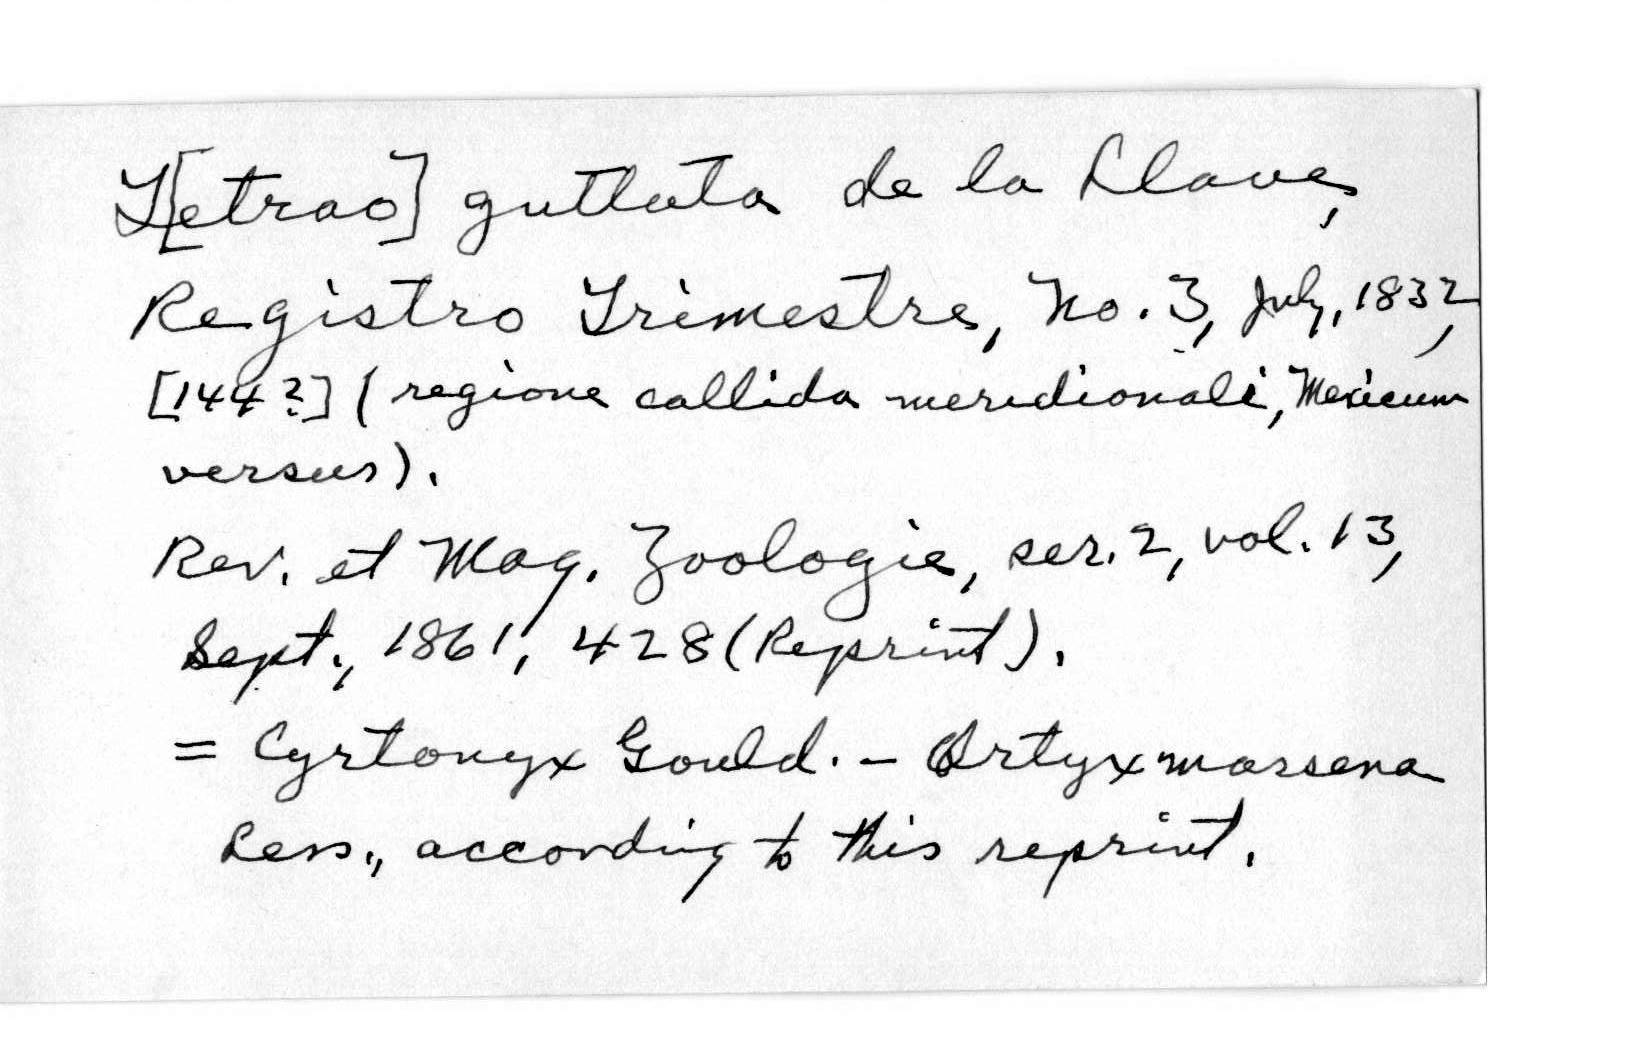 T[etrao] guttata de la Llave,
Registro Trimestre, No. 3, July, 1832,
[144?] (regione callida meridionali, Mexicum
versus).
Rev. et Mag. Zoologie, ser. 2, vol. 13,
Sept., 1861, 428 (Reprint).
= Cyrtonyx Gould. - Ortyx massena
Less., according to this reprint.